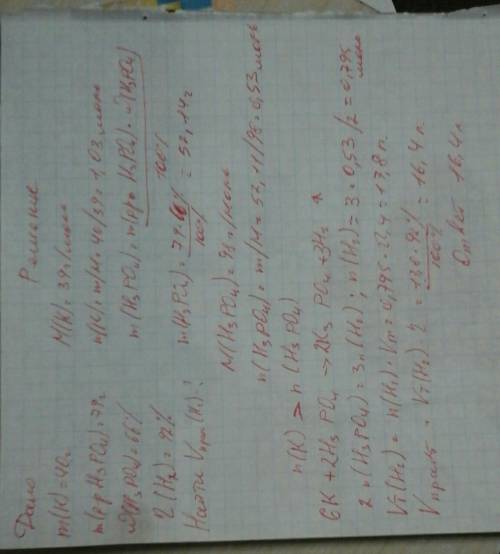 Дано
m(K)=40г
m(рр H3PO4)=79г
ω(H3PO4)=66%
η(H2)=92%
Найти Vпрак(H2)?
Решение
M(K)=39г/моль
n(K)=m/M=40/39=1,03 моль
m(H3PO4)=m(рр H3PO4)·ω(H3PO4)
100%
m(H3PO4)=79·66%
100%
=52,14г
M(H3PO4)=98г/моль
n(H3PO4)=m/M=52,14/98=0,53 моль
n(K) > n(H3PO4)
6K+2H3PO4→2K3PO4+3H2↑
2n(H3PO4)=3n(H2); n(H2)=3·0,53/2=0,795 моль
Vт(H2)=n(H2)·Vm=0,795·22,4=17,8л
Vпракт=Vт(H2)·η
=17,8·92%
100%
=16,4л
Ответ 16,4л